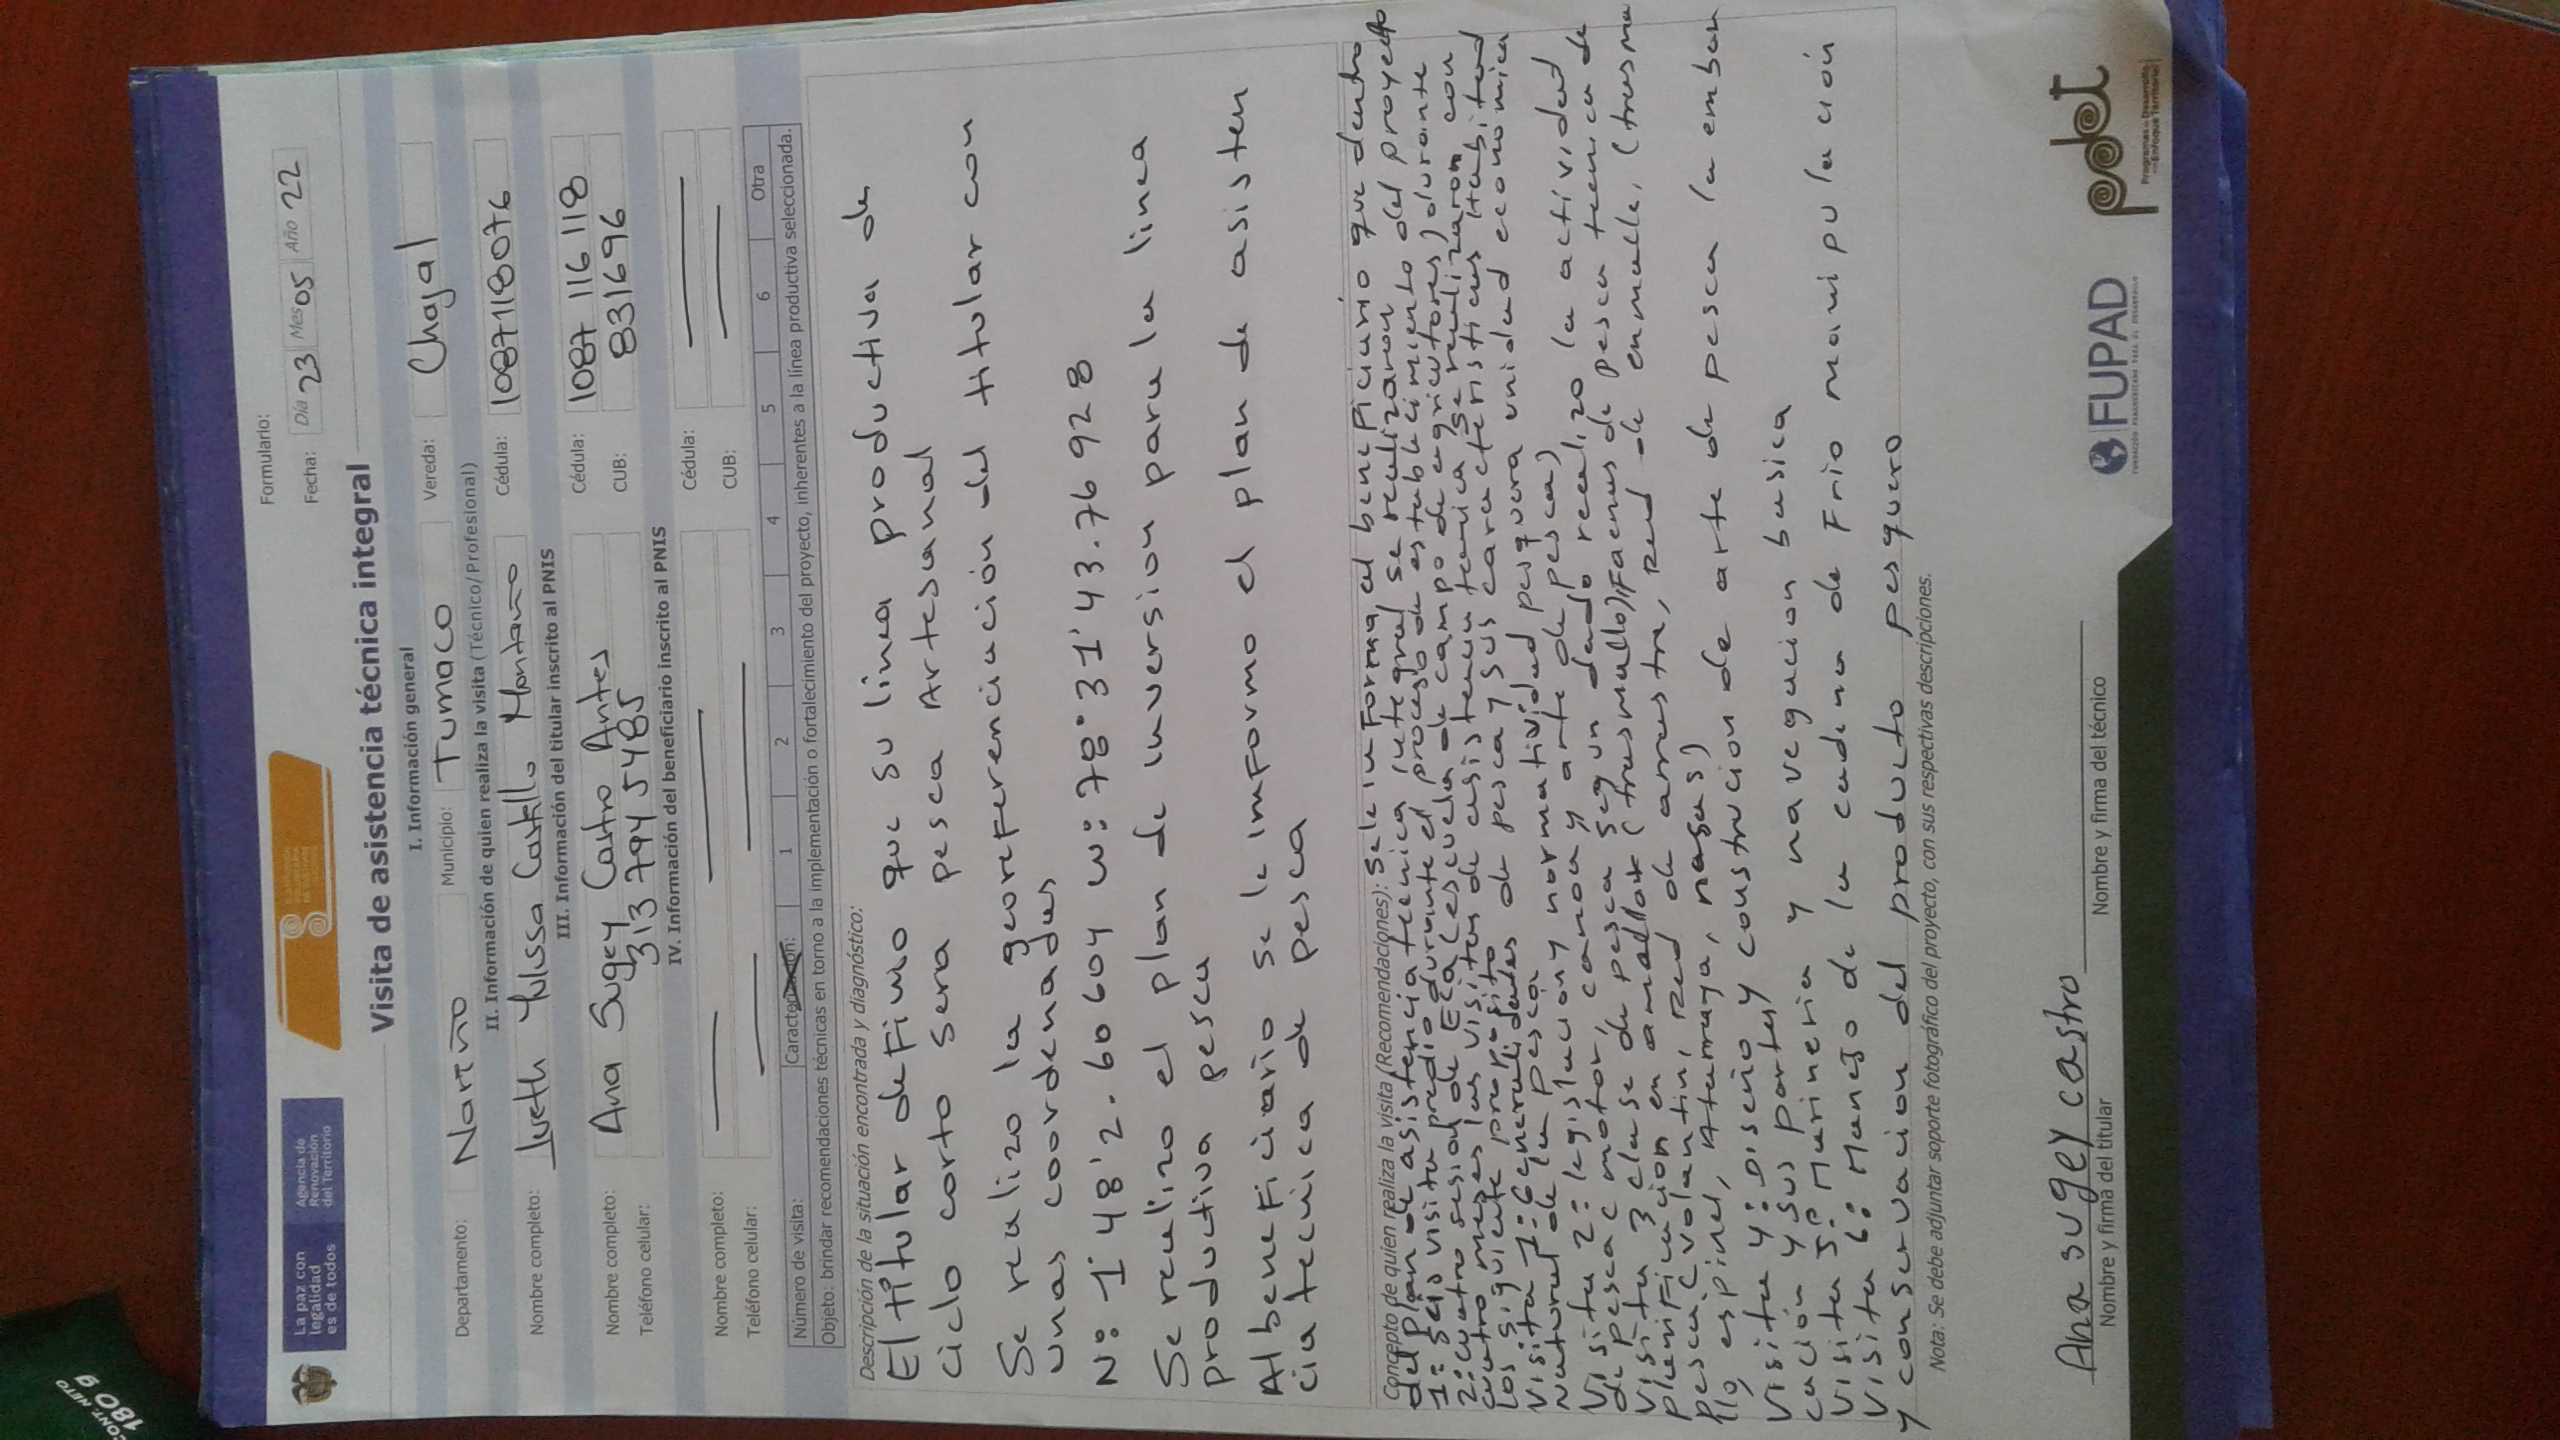 La paz con
legalidad
es de todos
Agencia de
Renovación
del Territorio
Formulario:
Fecha: Día 23 Mes 05 Año 22
Visita de asistencia técnica integral
I. Información general
Departamento: Nariño Municipio: Tumaco Vereda: Chajal
II. Información de quien realiza la visita (Técnico/Profesional)
Nombre completo: Iveth Yulissa Castillo Montaño Cédula: 1087118076
III. Información del titular inscrito al PNIS
Nombre completo: Ana Sugey Castro Antes Cédula: 1087 116 118
Teléfono celular: 313 794 5485 CUB: 831696
IV. Información del beneficiario inscrito al PNIS
Nombre completo: Cédula:
Teléfono celular: CUB:
Número de visita: Caracterización: 1 2 3 4 5 6 Otra
Objeto: brindar recomendaciones técnicas en torno a la implementación o fortalecimiento del proyecto, inherentes a la línea productiva seleccionada.
Descripción de la situación encontrada y diagnóstico:
El titular definio que su linea productiva de
ciclo corto sera pesca Artesanal
Se realizo la georeferenciación del titular con
unas coordenadas
N: 1°48'2.60604 w: 78°31'43.76928
Se realizo el plan de inversion para la linea
productiva pesca
Al beneficiario se le informo el plan de asisten
cia tecnica de pesca
Concepto de quien realiza la visita (Recomendaciones): Se le informa al beneficiario que dentro
del plan de asistencia tecnica integral se realizaron
1: seis visita predio durante el proceso de establecimiento del proyecto
2: cuatro sesion de ECA (escuela de campo de agricutores) durante
cuatro meses las visitas de asistencia tecnica se realizaron con
los siguiente proposito
Visita 1: Generalidades de pesca y sus caracteristicas Habitad
natural de la pesca
Visita 2: legislacion y normatividad pesquera unidad economica
de pesca c motor, canoa y arte de pesca)
Visita 3 clase de pesca segun dado realizo la actividad
planificacion en (trasmallo) Faenas de pesca tecnica de
pesca (volantin, red de arrastra, Red de enmalle, (trasma
llo, espinel, Atarraya, nasas)
Visita 4: Diseño y construcion de arte de pesca la embar
cación y sus partes
Visita 5: Marineria y navegacion basica
Visita 6: Manejo de la cadena de Frio manipulación
y conservacion del producto pesquero
Nota: Se debe adjuntar soporte fotográfico del proyecto, con sus respectivas descripciones.
Ana sugey castro
Nombre y firma del titular Nombre y firma del técnico
FUPAD
FUNDACIÓN PANAMERICANA PARA EL DESARROLLO
pdet
Programas de Desarrollo
con Enfoque Territorial
CONT. NETO
180 g